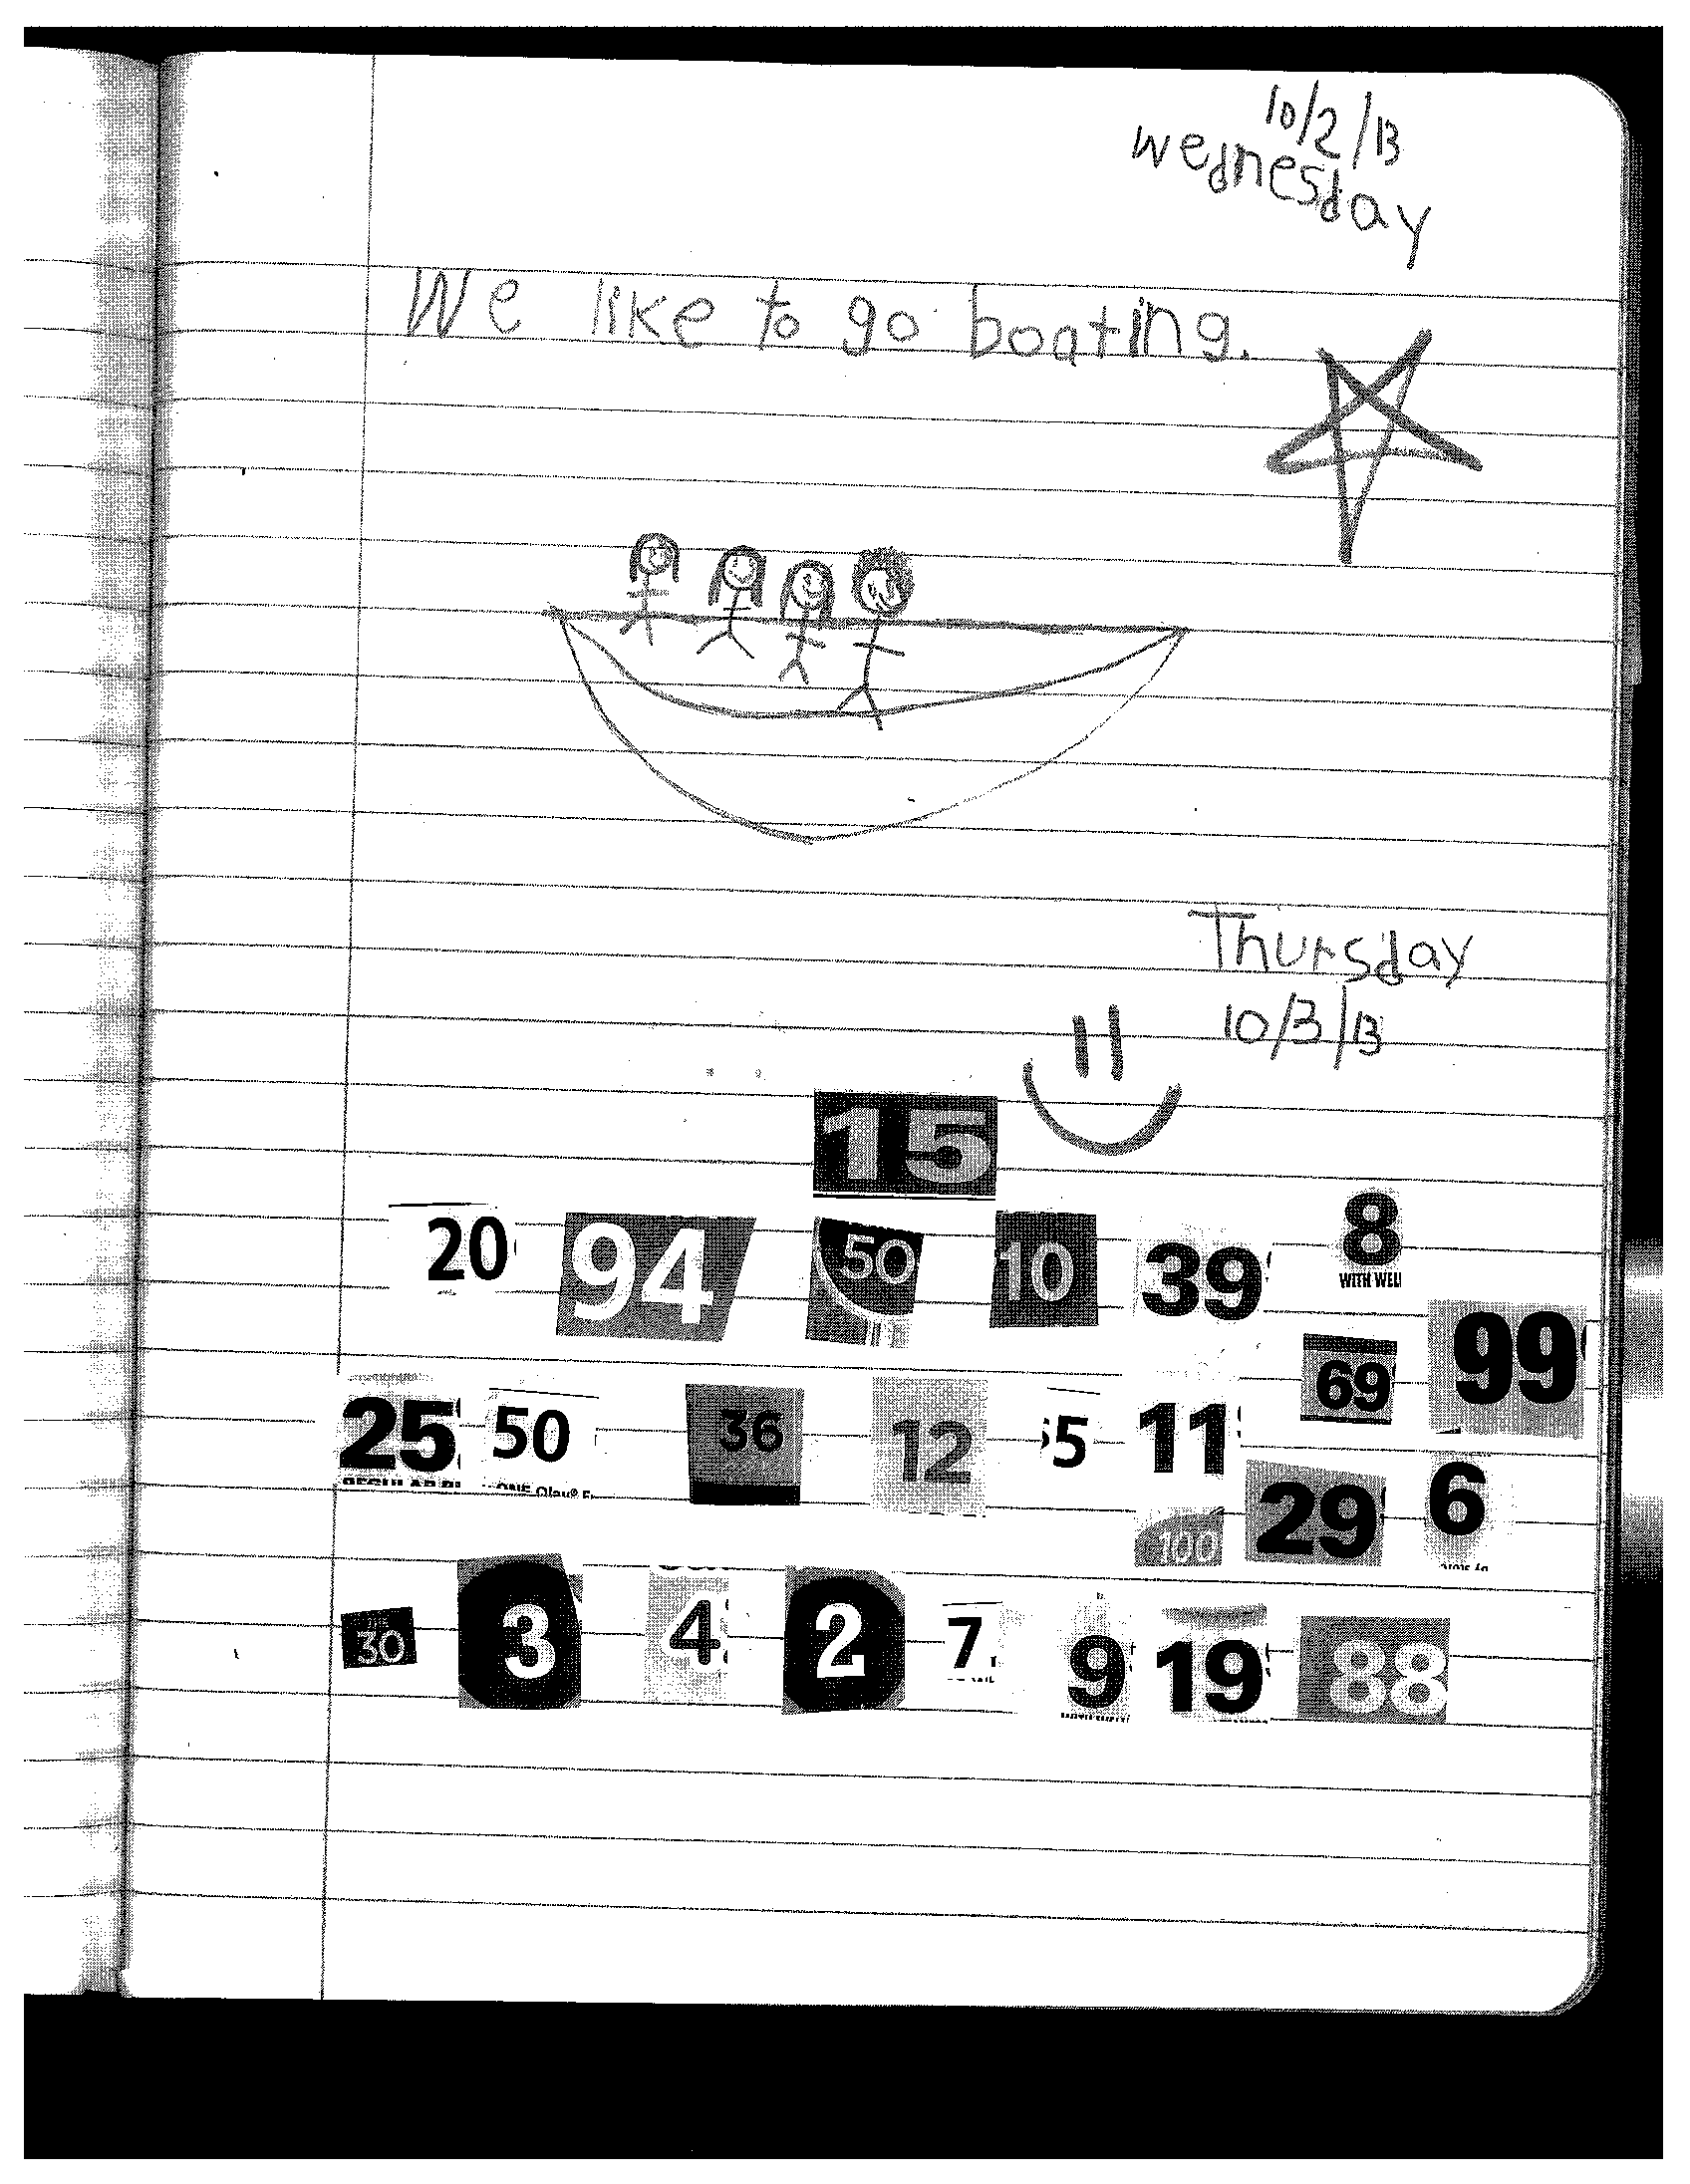 10/2/13
wednesday
We like to go boating.
Thursday
10/3/13
15
20 94 50 10 39 8
WITH WELL
69 99
25 50 36 12 5 11
ONE Olay®
100 29 6
30 3 4 2 7 9 19 88